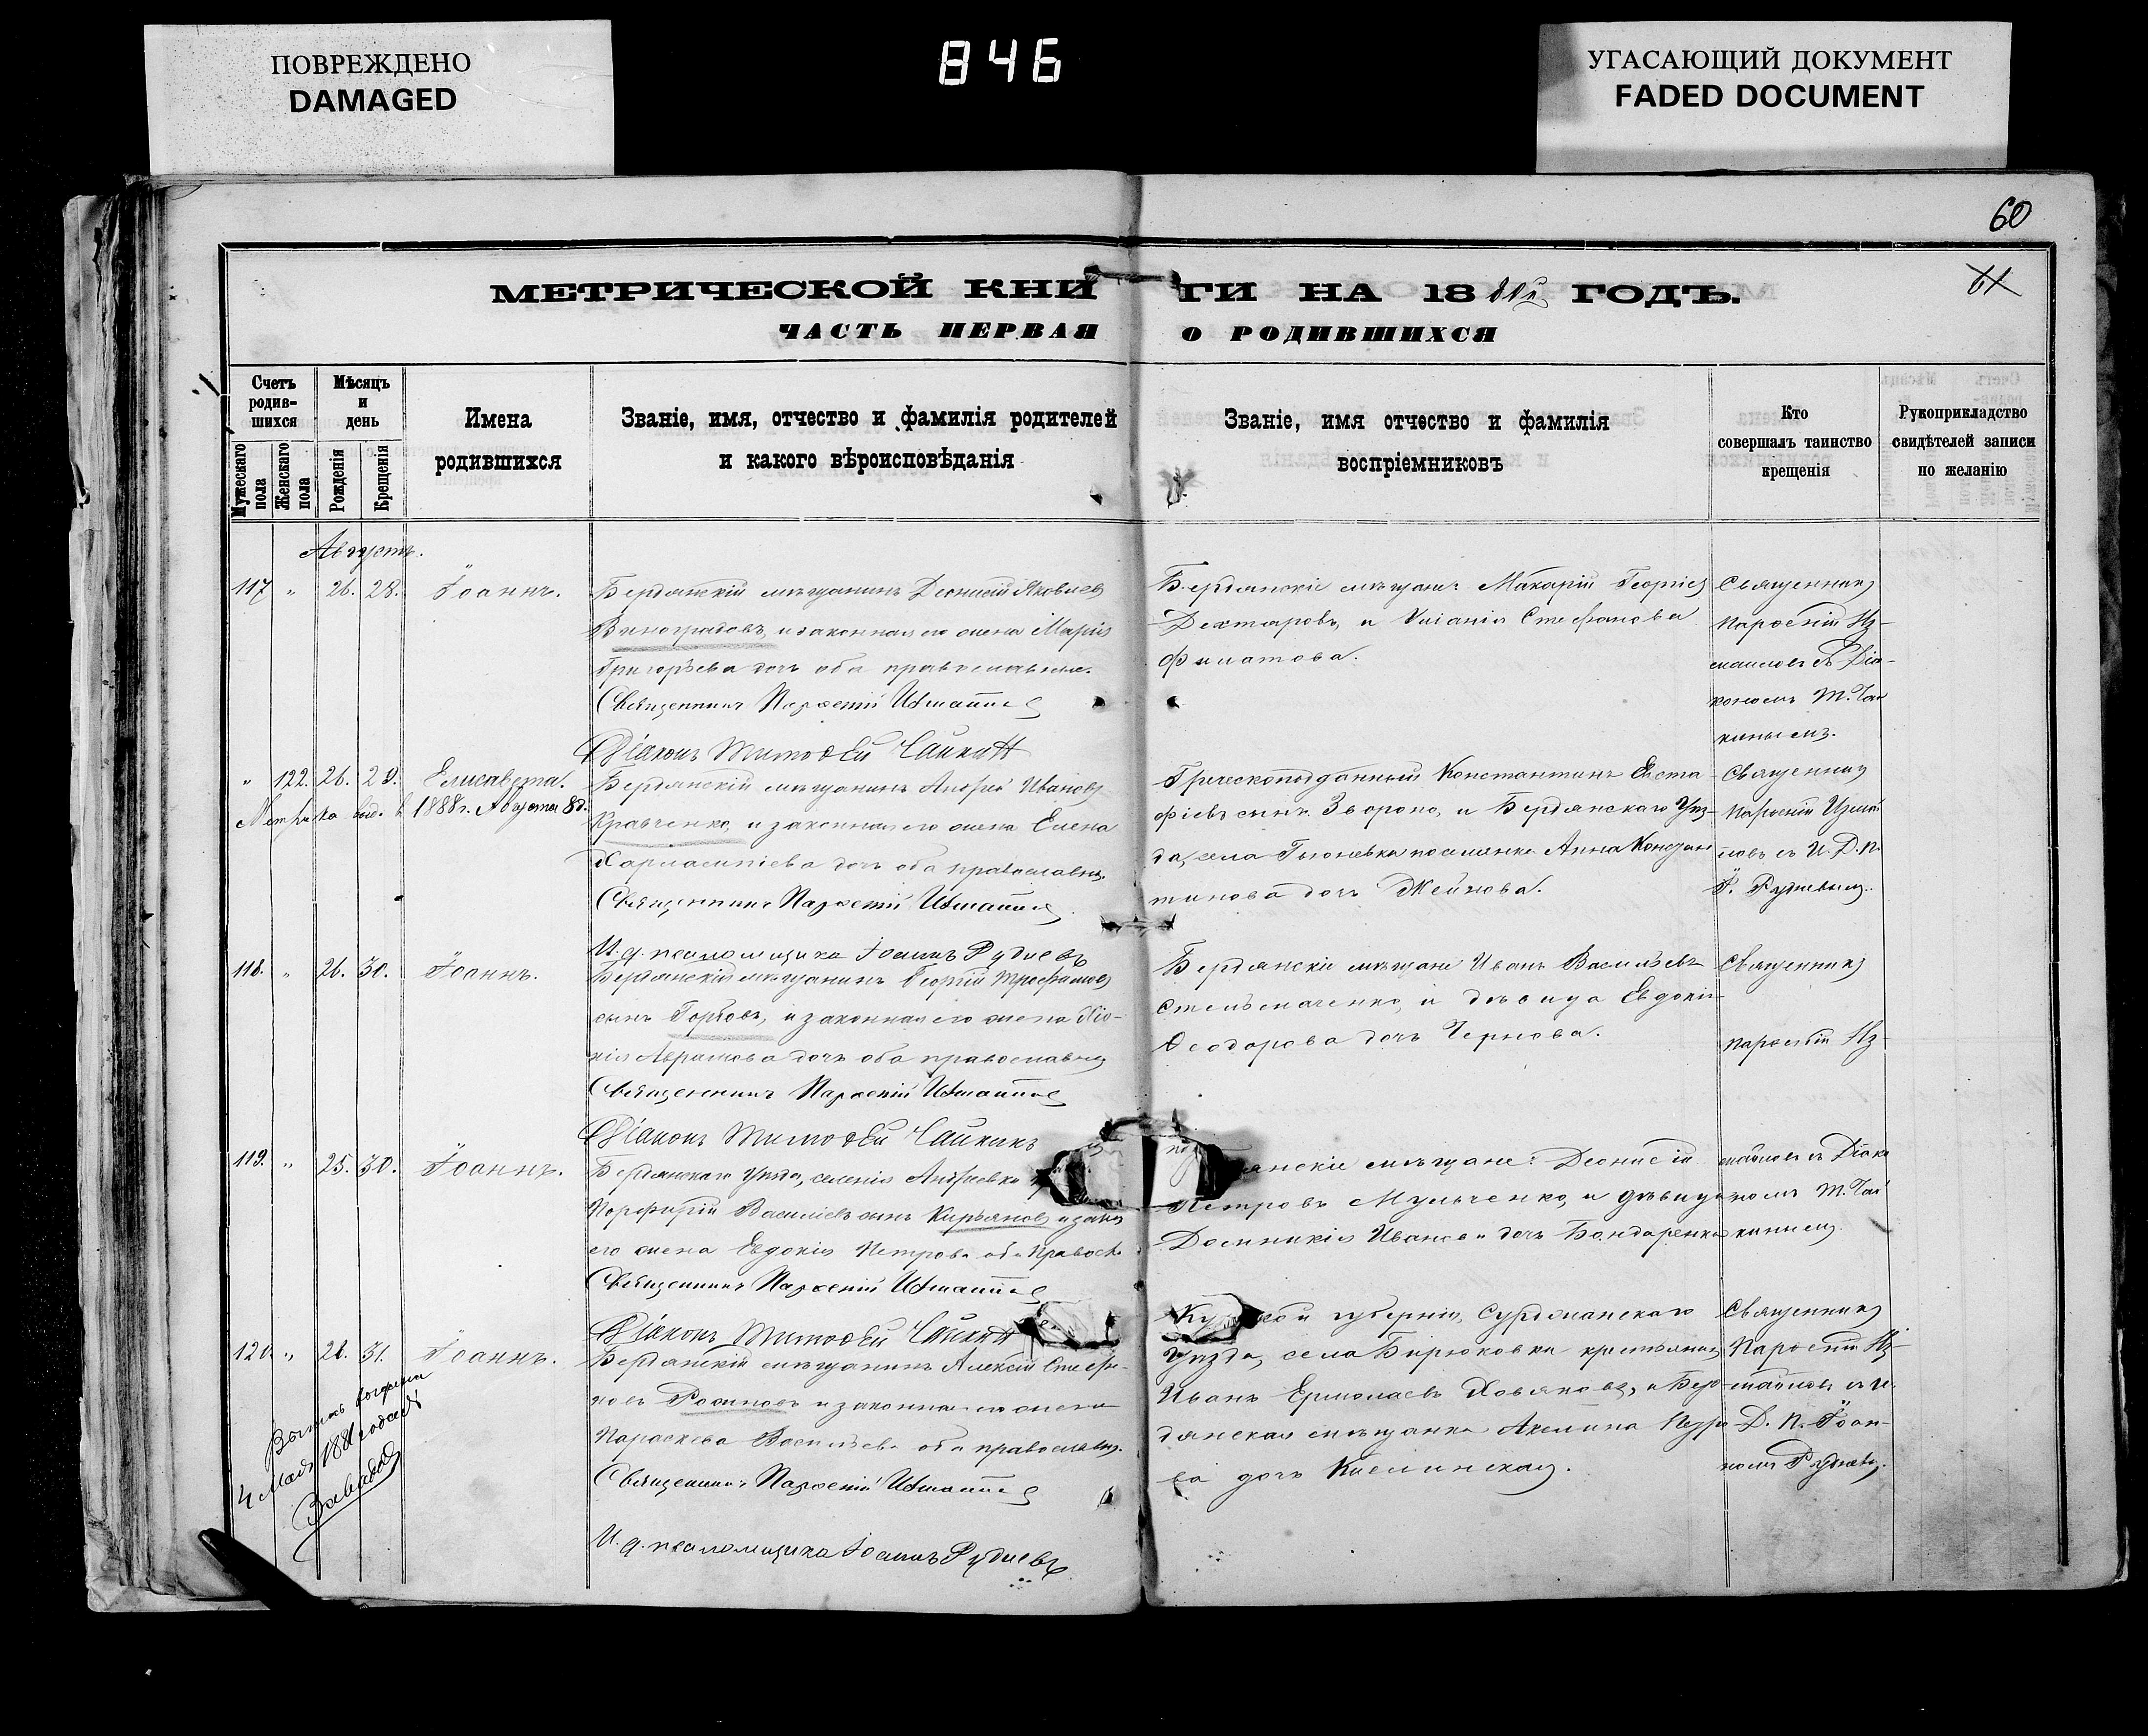 ПОВРЕЖДЕНО
DAMAGED
846
УГАСАЮЩИЙ ДОКУМЕНТ
FADED DOCUMENT
60
61
МЕТРИЧЕСКОЙ КНИ ГИ НА 18 ГОДЪ.
ЧАСТЬ ПЕРВАЯ О РОДИВШИХСЯ
Счетъ родив-шихся
Мужескаго пола
Женскаго пола
Мѣсяцъ и день
Рожденія
Крещенія
Имена
родившихся
Званіе, имя, отчество и фамилія родителей
и какого вѣроисповѣданія
Званіе, имя отчество и фамилія
воспріемниковъ
Кто
совершалъ таинство
крещенія
Рукоприкладство
свидѣтелей записи
по желанію
Августъ.
117 " 26. 28. Іоаннъ.
Бердянскій мѣщанинъ Діонисій Яковлевъ
Виноградовъ, и законная его жена Марія
Григорьева дочь оба православные.
Священникъ Парѳеній
Діаконъ Тимоѳей Чайкинъ
Бердянскіе мѣщане Макарій Георгіевъ
Дехтяровъ, и Стефанова
Филатова.
Священникъ
Парѳеній Из-
маиловъ съ Діа-
кономъ Т. Чай
кинымъ.
" 122. 26. 29. Елисавета.
Метрика выд. 1888г. Августа 8д.
Бердянскій мѣщанинъ Андрей Ивановъ
Кравченко, и законная его жена Елена
Харлампіева дочь оба православны.
Священникъ Парѳеній
И. д. псаломщика Іоаннъ Рудневъ
Греческоподданный Константинъ Евста-
фіевъ сынъ Звороно, и Бердянскаго Уѣз-
да, села Гюневки поселянка Анна Констан
тинова дочь
Священникъ
Парѳеній Измаи
ловъ съ И. Д. П.
І. Рудневымъ.
118. " 26. 30. Іоаннъ.
Бердянскій мѣщанинъ Георгій Трофимовъ
сынъ Горбовъ, и законная его жена Хіо-
нія Аврамова дочь оба православны
Священникъ Парѳеній
Діаконъ Тимоѳей Чайкинъ
Бердянскіе мѣщане Иванъ Васильевъ
Стельмаченко, и дѣвица Евдокія
Ѳеодорова дочь Чернова.
Священникъ
Парѳеній Из-
маиловъ съ Діако
номъ Т. Чай
кинымъ.
119. " 25. 30. Іоаннъ.
Бердянскаго Уѣзда, селенія Андреевки
Порфирій Василіевъ сынъ Кирьяновъ и закон
его жена Евдокія Петрова оба Правосл.
Священникъ Парѳеній
Діаконъ Тимоѳей Чайкинъ
янскіе мѣщане: Діонисій
Петровъ Мульченко, и дѣвица
Домникія Иванова дочь Бондаренкова
120. " 28. 31. Іоаннъ.
Выпись выдана
4 Мая 188 года
Бердянскій мѣщанинъ Алексій Стефа-
новъ и законная его жена
Параскева Васильева оба православны.
Священникъ Парѳеній
И. д. псаломщика Іоаннъ Рудневъ
Курской губерніи, Суджанскаго
Уѣзда, села Бирюковки крестьянинъ
Иванъ Ермолаевъ Ховяковъ, и Бер-
дянская мѣщанка Акилина Петро
ва дочь
Священникъ
Парѳеній Из-
маиловъ съ И.
Д. П. Іоан-
номъ Рудневы.